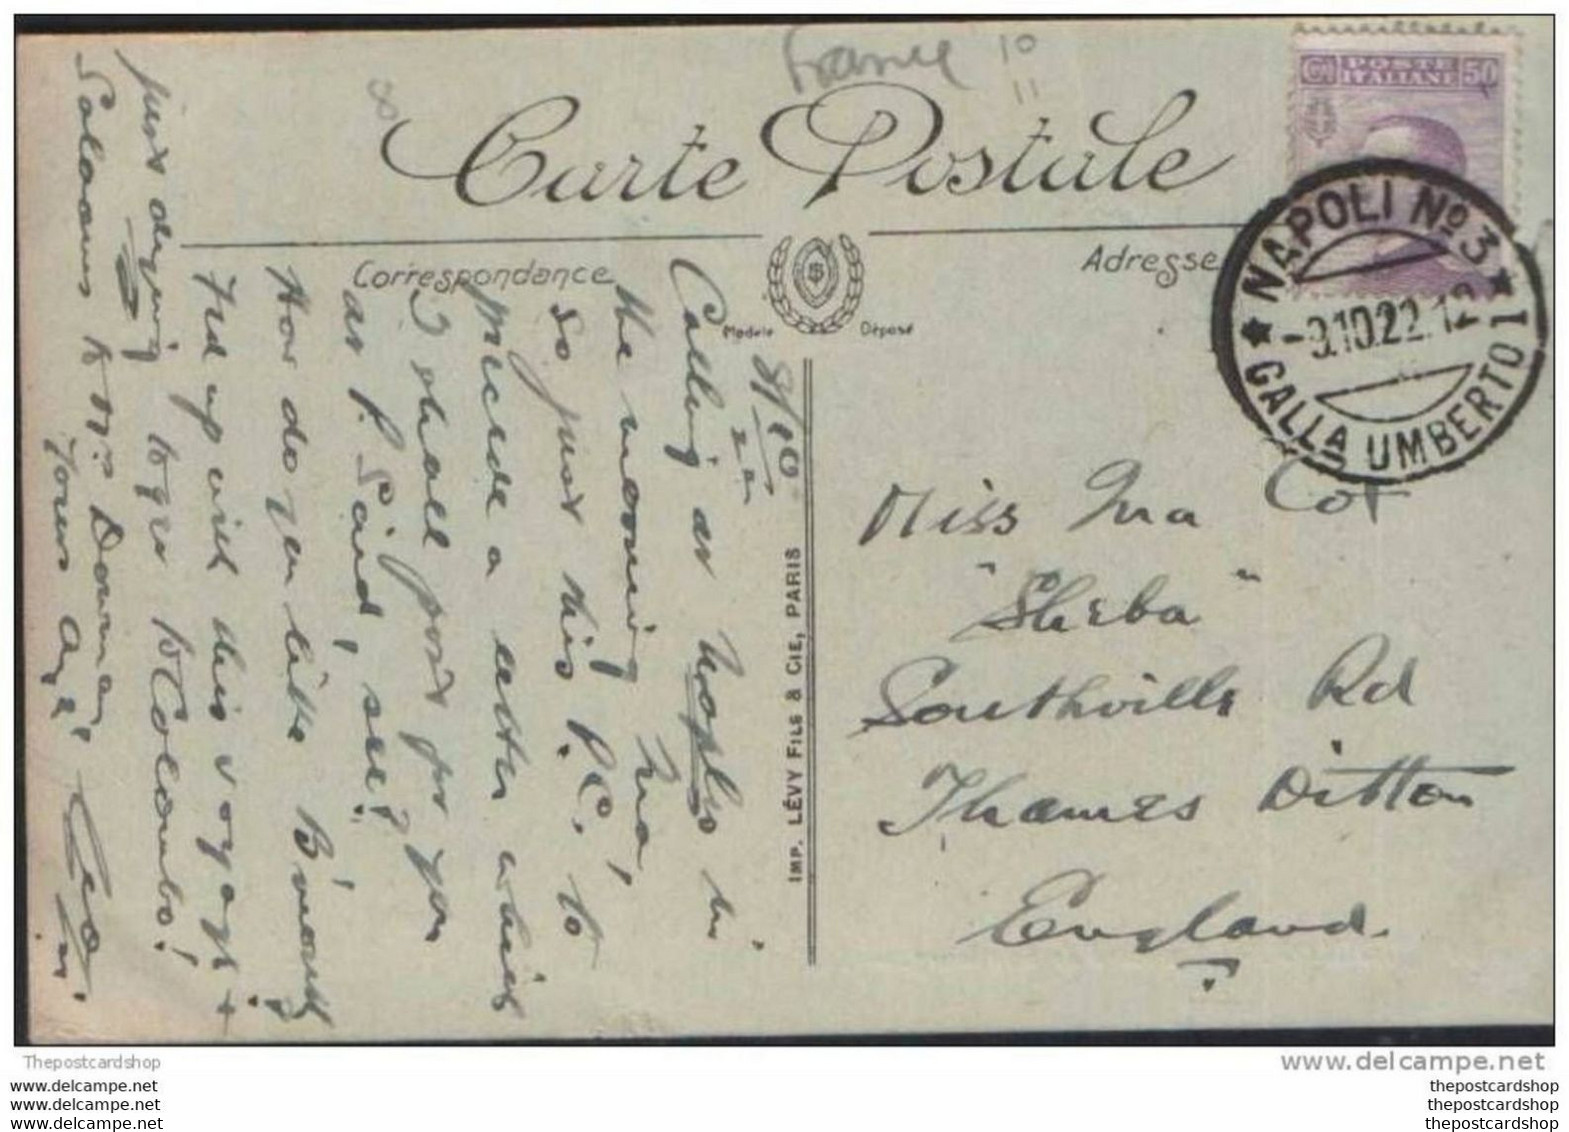 France 10
11
Carte Postale
Correspondance
Adresse
Modèle Déposé
POSTE
ITALIANE
50
NAPOLI No 3
-9.10.22.12
GALLA UMBERTO I
IMP. LÉVY FILS & CIE, PARIS
8/10
22
Calling at Naples in
the morning Ina,
so just this P.C. to
precede a letter which
I shall post for you
at P. Said, see?
How do you like B'mouth
Fed up with this voyage +
just dying to get to Colombo!
Salaams to Mrs Downing
Yours Leo
Miss Ina Cox
"Sheba"
Southville Rd
Thames Ditton
England
Thepostcardshop
www.delcampe.net
www.delcampe.net
www.delcampe.net
www.delcampe.net
thepostcardshop
thepostcardshop
thepostcardshop